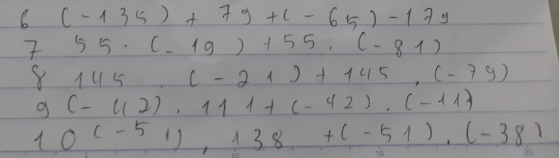 6 (-135) + 79 + (-65) - 179
7 55 . (-19) + 55 . (-81)
8 145 . (-21) + 145 . (-79)
9 (-42) . 111 + (-42) . (-11)
10 (-51) . 138 + (-51) . (-38)